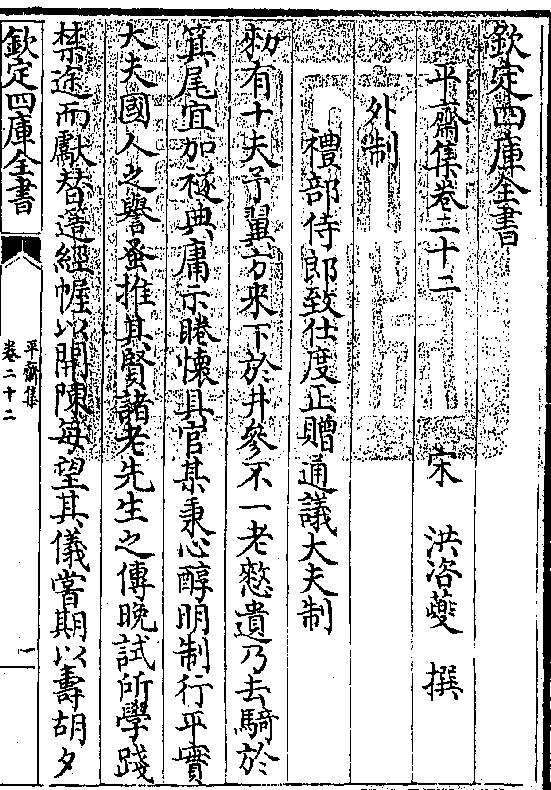 欽定四庫全書
平齋集卷二十二
宋 洪咨夔 撰
外制
禮部侍郎致仕度正贈通議大夫制
勑有十夫予翼方來下於井參不一老憖遺乃去騎於
箕尾宜加襚典庸示睠懷具官某秉心醇明制行平實
大夫國人之譽蚤推其賢諸老先生之傳晚試所學踐
禁途而獻替造經幄以開陳每望其儀嘗期以壽胡夕
欽定四庫全書
平齋集
卷二十二
一